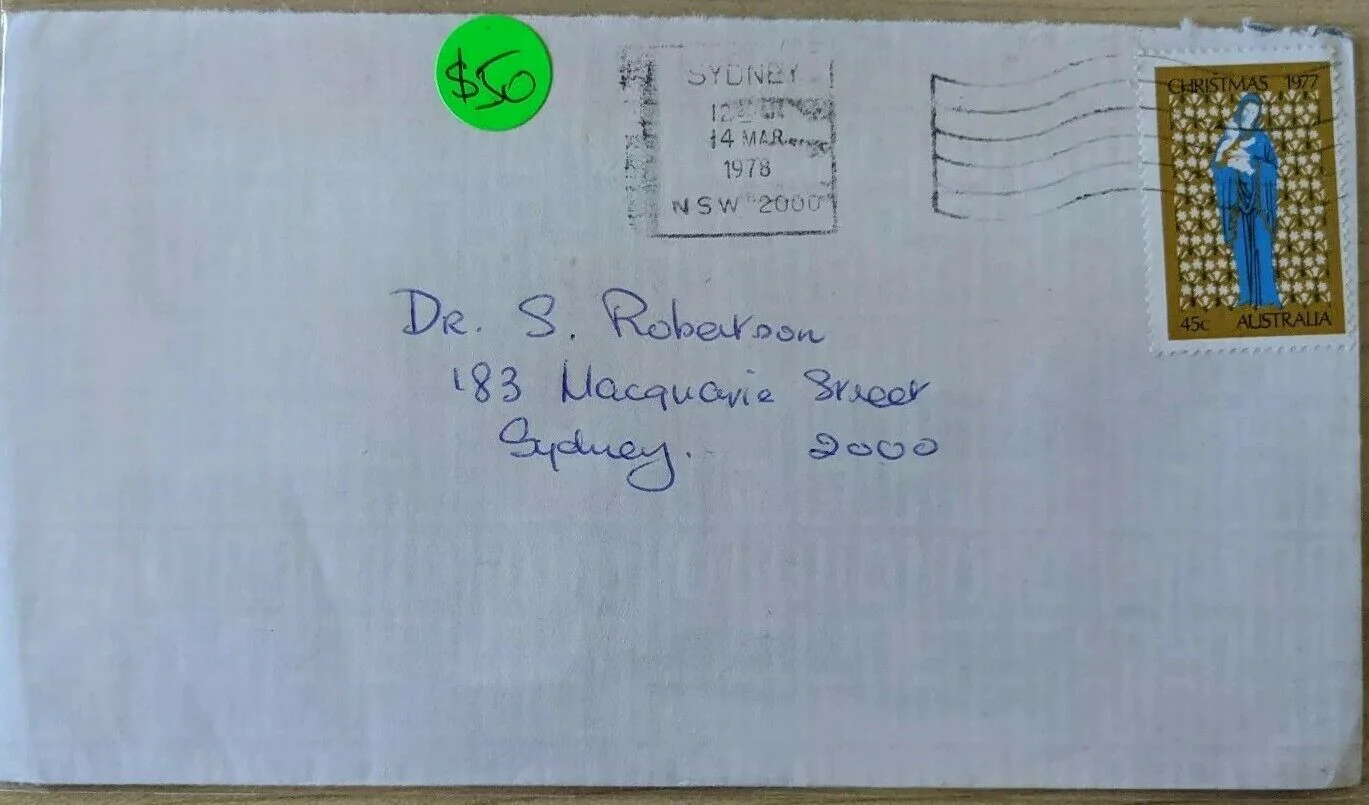 $50
SYDNEY
12
14 MAR
1978
NSW 2000
CHRISTMAS 1977
45c AUSTRALIA
Dr. S. Robertson
183 Macquarie Street
Sydney. 2000